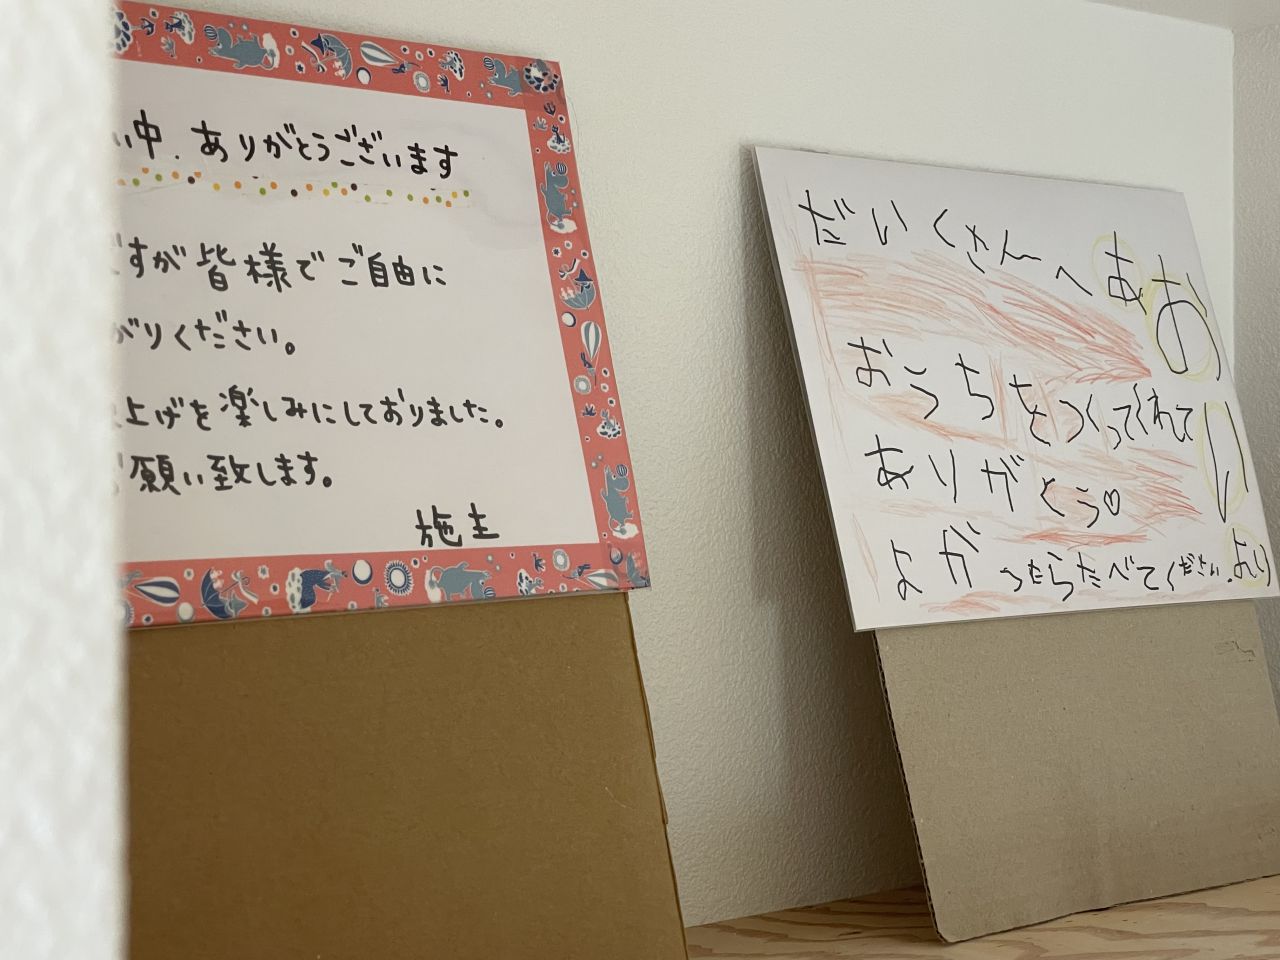 い中、ありがとうございます
ですが皆様でご自由に
がりください。
上げを楽しみにしておりました。
願い致します。
施主
だいくさんへ
おうちをつくってくれて
ありがとう♡
よかったらたべてください。
あおいより